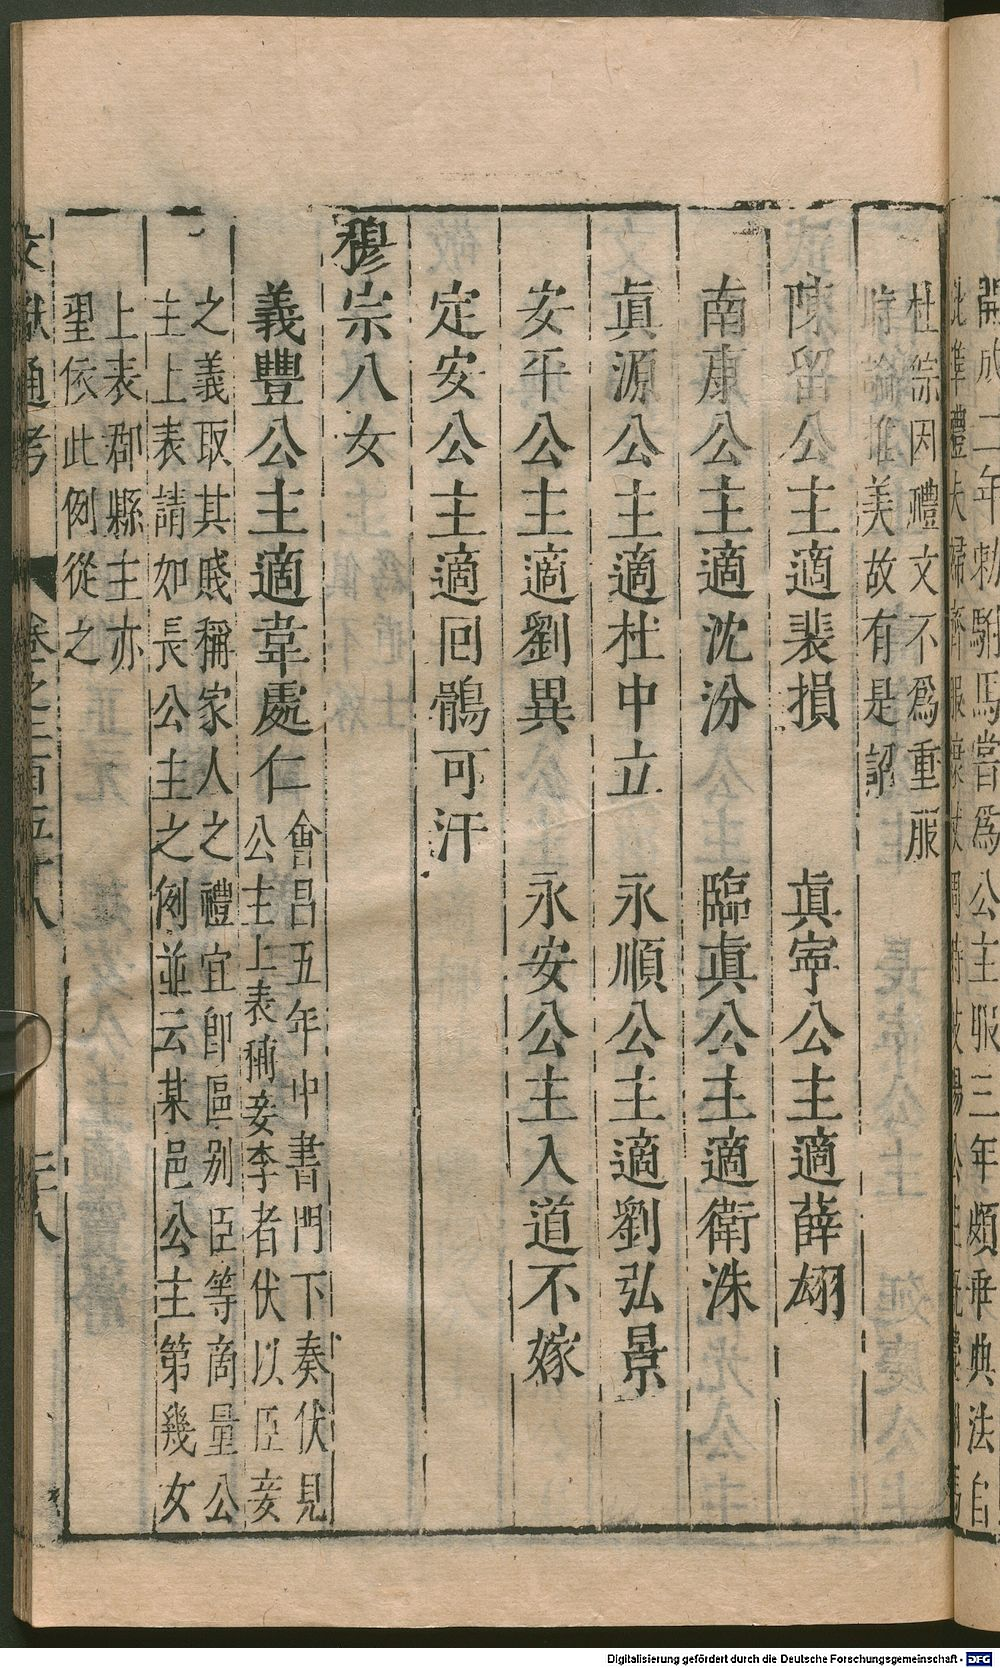 開成二年勅駙馬當為公主服三年頗乖典法自
杜綜因禮文不爲重服
時論推美故有是詔
陳留公主適裴損 眞寧公主適薛翃
南康公主適沈汾 臨眞公主適衛洙
眞源公主適杜中立 永順公主適劉弘景
安平公主適劉異 永安公主入道不嫁
定安公主適回鶻可汗
穆宗八女
義豐公主適韋處仁
會昌五年中書門下奏伏見
公主上表稱妾李者伏以臣妾
之義取其賤稱家人之禮宜卽區別臣等商量公
主上表請如長公主之例並云某邑公主第幾女
上表郡縣主亦
聖依此例從之
文獻通考 卷之二百五十八 二十八
Digitalisierung gefördert durch die Deutsche Forschungsgemeinschaft - DFG